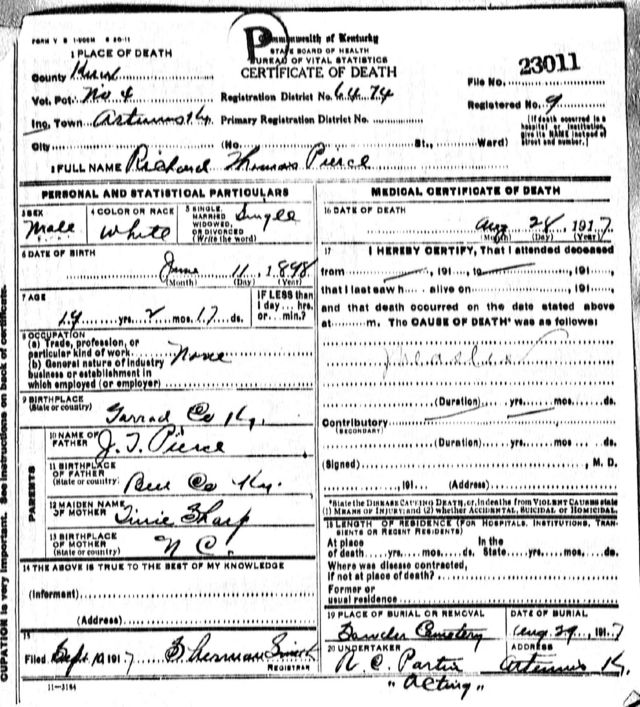 FORM V S 1-
Commonwealth of Kentucky
STATE BOARD OF HEALTH
BUREAU OF VITAL STATISTICS
CERTIFICATE OF DEATH
1 PLACE OF DEATH
County Knox
Vot. Pct. No 4
Inc. Town Artemus Ky.
City
Registration District No. 6474
Primary Registration District No.
(No. St., Ward)
File No. 23011
Registered No. 9
(If death occurred in a
hospital or institution,
give its NAME instead of
street and number.)
2 FULL NAME Richard Thomas Pierce
PERSONAL AND STATISTICAL PARTICULARS
3 SEX
Male
4 COLOR OR RACE
White
5 SINGLE,
MARRIED
WIDOWED,
OR DIVORCED
(Write the word)
Single
6 DATE OF BIRTH
June 11, 1898
(Month) (Day) (Year)
7 AGE
19 yrs. 2 mos. 17 ds.
IF LESS than
1 day... hrs.
or... min.?
8 OCCUPATION
(a) Trade, profession, or
particular kind of work None
(b) General nature of industry
business or establishment in
which employed (or employer)
9 BIRTHPLACE
(State or country)
Garrad Co Ky.
PARENTS
10 NAME OF
FATHER
J. T. Pierce
11 BIRTHPLACE
OF FATHER
(State or country)
Bell Co Ky.
12 MAIDEN NAME
OF MOTHER
Sharp
13 BIRTHPLACE
OF MOTHER
(State or country)
N C.
14 THE ABOVE IS TRUE TO THE BEST OF MY KNOWLEDGE
(Informant)
(Address)
15
Filed Sept 10, 1917 Sherman
REGISTRAR
11-3184
MEDICAL CERTIFICATE OF DEATH
16 DATE OF DEATH
Aug 28, 1917
(Month) (Day) (Year)
17 I HEREBY CERTIFY, That I attended deceased
from , 191 to , 191 ,
that I last saw h alive on , 191 ,
and that death occurred on the date stated above
at m. The CAUSE OF DEATH* was as follows:
Measles
(Duration) yrs. mos. ds.
Contributory
(SECONDARY)
(Duration) yrs. mos. ds.
(Signed) , M. D.
, 191 (Address)
*State the DISEASE CAUSING DEATH, or, in deaths from VIOLENT CAUSES state
(1) MEANS OF INJURY; and (2) whether ACCIDENTAL, SUICIDAL or HOMICIDAL.
18 LENGTH OF RESIDENCE (FOR HOSPITALS, INSTITUTIONS, TRANSIENTS OR RECENT RESIDENTS)
At place In the
of death yrs. mos. ds. State yrs. mos. ds.
Where was disease contracted,
if not at place of death?
Former or
usual residence
19 PLACE OF BURIAL OR REMOVAL
Cemetery
DATE OF BURIAL
Aug 29, 1917
20 UNDERTAKER
N. C. Partin
ADDRESS
Artemus Ky.
"Acting"
CUPATION is very important. See instructions on back of certificate.